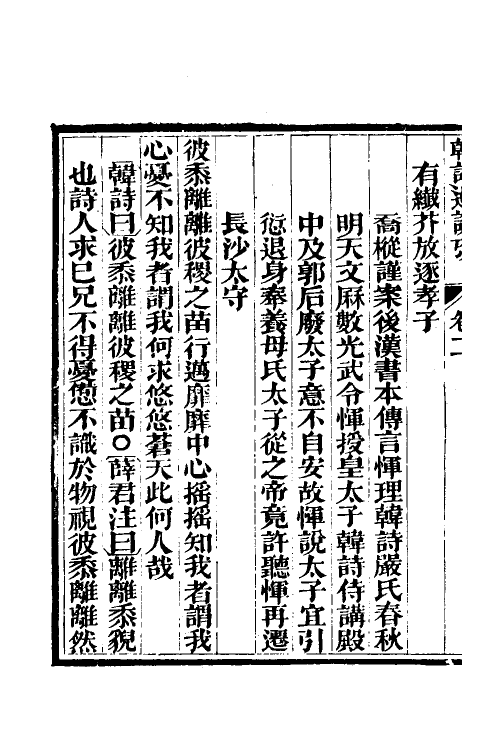 有纎芥放逐孝子
喬樅謹案後漢書本傳言惲理韓詩嚴氏春秋
明天文厤數光武令惲授皇太子韓詩侍講殿
中及郭后廢太子意不自安故惲說太子宜引
愆退身奉養母氏太子從之帝竟許聽惲再遷
長沙太守
彼黍離離彼稷之苗行邁靡靡中心搖搖知我者謂我
心憂不知我者謂我何求悠悠蒼天此何人哉
韓詩曰彼黍離離彼稷之苗○薛君注曰離離黍貌
也詩人求巳兄不得憂懣不識於物視彼黍離離然